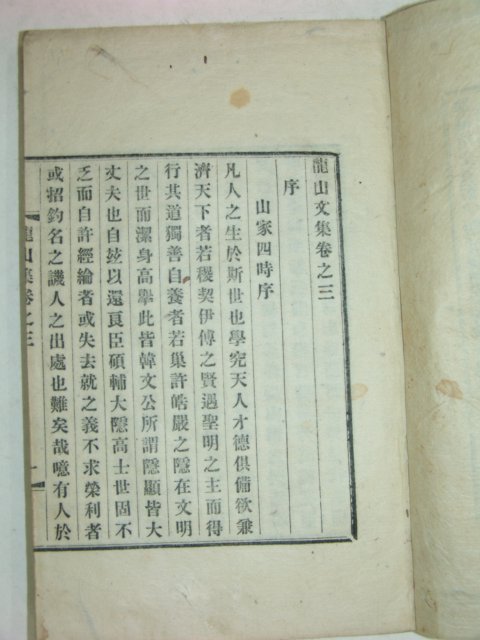 龍山文集卷之三
序
山家四時序
凡人之生於斯世也學究天人才德俱備欲兼
濟天下者若稷契伊傅之賢遇聖明之主而得
行其道獨善自養者若巢許皓嚴之隱在文明
之世而潔身高擧此皆韓文公所謂隱顯皆大
丈夫也自玆以還良臣碩輔大隱高士世固不
乏而自許經綸者或失去就之義不求榮利者
或招釣名之譏人之出處也難矣哉噫有人於
龍山集卷之三 一